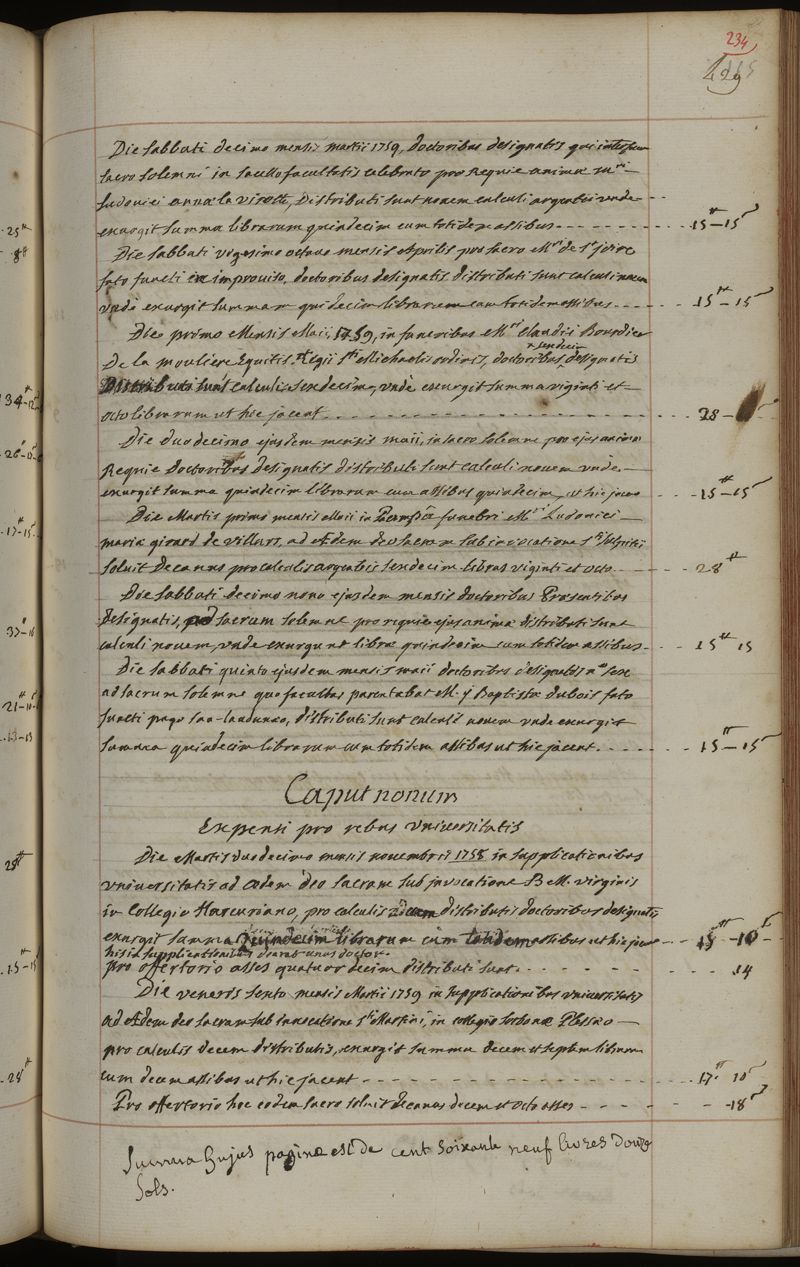 234
429
Die sabbati decimo mensis martii 1759, doctoribus designatis qui interfuere
sacro solemni in sacello facultatis celebrato pro Requie animæ mri
Ludovici annæ la virotte, Distributi sunt novem calculi argentei unde
exurgit summa librarum quindecim cum totidem assibus - - - 15tt-15s
Die sabbati vigesimo octavo mensis Aprilis pro sacro Mri de st
fato functi ex improviso, doctoribus designatis distributi sunt calculi novem
undè exurgit summa quindecim librarum cum totidem assibus - - - 15tt-15s
Die primo Mensis Maii, 1759, in funeribus Mri claudii Bourdier
De la mouliere Equitis Regii sti Michaelis ordinis, doctoribus sexdecim designatis
Distributi sunt calculi sexdecim, undè exurgit summa viginti et
octo librarum ut hic jacent - - - 28
Die duodecimo ejusdem mensis maii, in sacro solemni pro ejus animæ
Requie doctoribus designatis distributi sunt calculi novem unde
exurgit summa quindecim librarum cum assibus quindecim ut hic jacent - - - 15tt-15s
Die Martis primo mensis Maii in funebri Mri Ludovici
mariæ girard de villars, ad Ædem deo sacram sub invocatione sti sulpitii
soluit Decanus pro calculis argenteis sexdecim libras viginti et octo - - - 28tt
Die sabbati decimo nono ejusdem mensis doctoribus Præsentibus
designatis, ad sacrum solemne pro requie ejus animæ distributi sunt
calculi novem, unde exurgunt libræ quindecim cum totidem assibus - - - 15tt 15
Die sabbati quinto ejusdem mensis maii doctoribus designatis
ad sacrum solemne quo facultas parentabat M. j Baptistæ dubois fato
functi pago, distributi sunt calculi novem unde exurgit
summa quindecim librarum cum totidem assibus ut hic jacent - - - 15tt-15s
Caput nonum
Expensi pro rebus Universitatis
Die Martis duodecimo mensis novembris 1758 in supplicationibus
Universitatis ad ædem deo sacram sub invocatione B M. virginis
in Collegio Harcuriano, pro calculis distributis doctoribus designatis
exurgit summa quindecim librarum cum totidem assibus ut hic jacent - - - 15tt-10s
his in supplicationibus deerat unus doctor
pro offertorio asses quatuordecim distributi sunt - - - 14
Die veneris sexto mensis Martii 1759 in supplicationibus universitatis
ad Ædem deo sacram sub invocatione sti Martini, in collegio sorbonæ Plessæo
pro calculis decem distributis, exurgit summa decem et septem librarum
cum decem assibus ut hic jacent - - - 17tt 10s
Pro offertorio hoc eodem sacro soluit decanus decem et octo asses - - - 18s
Summa hujus paginæ est de cent soixante neuf livres douze
sols.